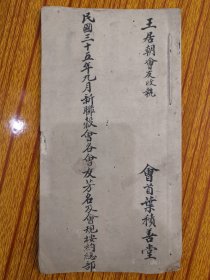 王居朝會友收執
會首葉積善堂
民國三十五年九月新聯穀會各會友芳名及會規按約總部